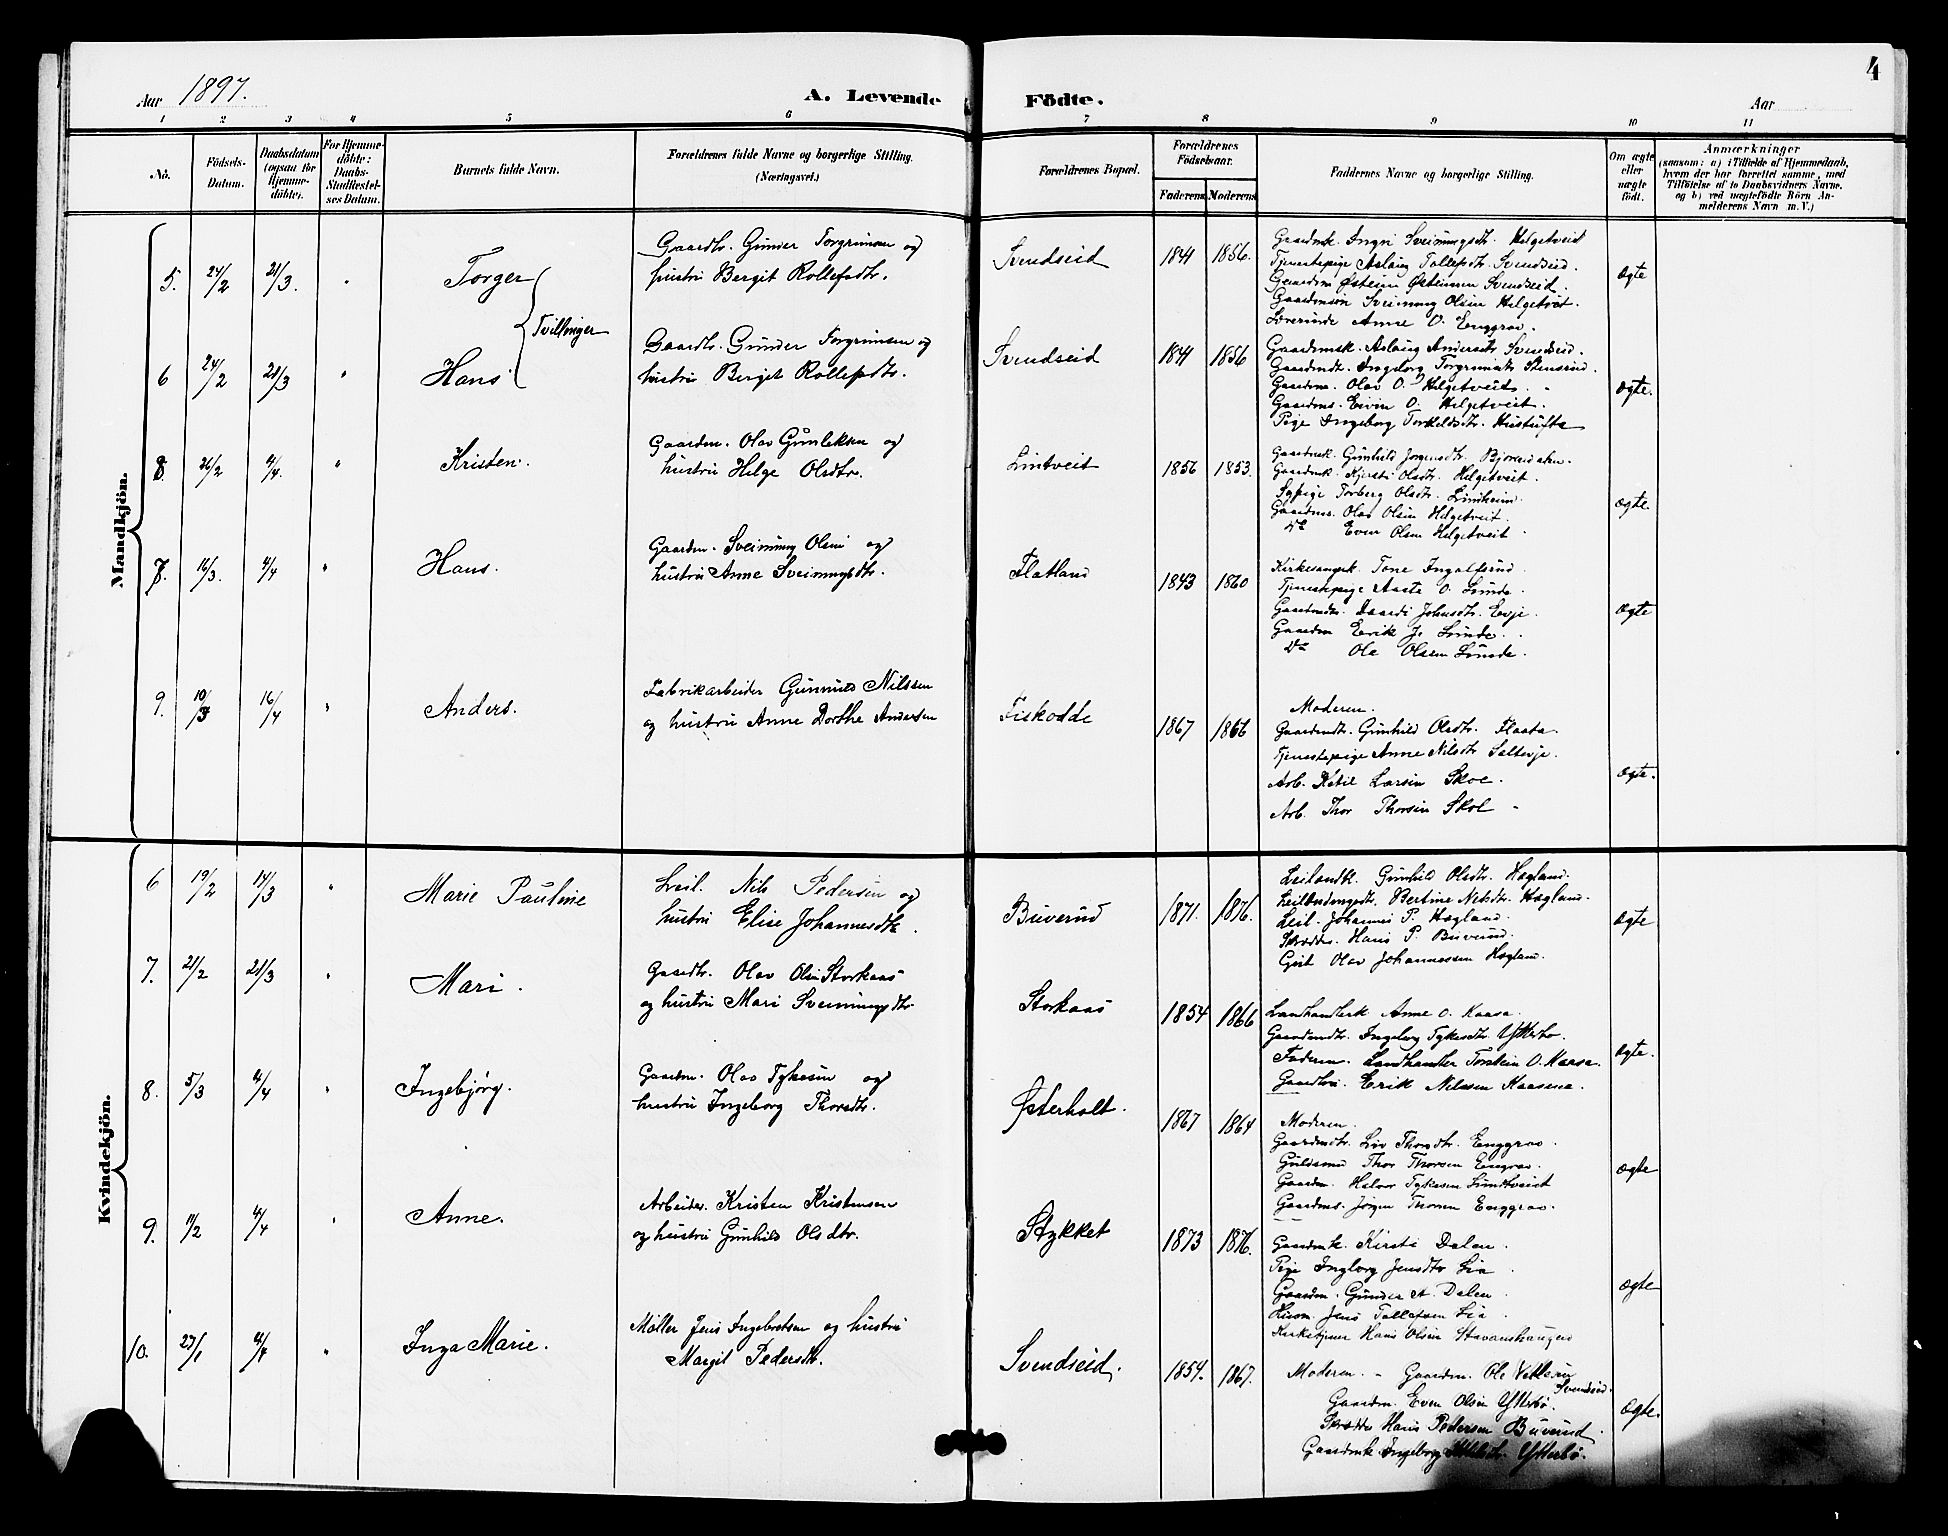 4
Aar 1897. A. Levende Födte. Aar
1 2 3 4 5 6 7 8 9 10 11
No.
Födsels-
Datum.
Daabsdatum
(ogsaa for
Hjemme-
döbte).
For Hjemme-
döbte:
Daabs-
Stadfæstel-
ses Datum.
Barnets fulde Navn.
Forældrenes fulde Navne og borgerlige Stilling.
(Næringsvei.)
Forældrenes Bopæl.
Forældrenes
Födselsaar.
Faderens Moderens
Faddernes Navne og borgerlige Stilling.
Om ægte
eller
uægte
födt.
Anmærkninger
(saasom: a) i Tilfælde af Hjemmedaab,
hvem der har forrettet samme, med
Tilföielse af to Daabsvidners Navne,
og b) ved uægtefödte Börn An-
melderens Navn m. V.)
Mandkjön.
5. 24/2 21/3. " Torger
Tvillinger
Gaardbr. Gunder Torgrimsen og
hustru Bergit Rollefsdtr.
Svendseid 1841 1856.
Gaardmk. Ingri Sveinungsdtr. Helgetveid
Tjenestepige Aslaug Tollefsdtr. Svendseid.
Gaardm Østein Østeinsen Svendseid.
Gaardmsøn Sveinung Olsen Helgetveit.
Lærerinde Anne O. Enggrav.
ægte
6 24/2 21/3 " Hans
Gaardbr. Gunder Torgrimsen og
hustru Bergit Rollefsdtr.
Svendseid 1841 1856
Gaardmsk. Aslaug Andersdtr. Svendseid.
Gaardmdtr. Ingeborg Torgrimsdtr. Stensrud.
Gaardms. Olav O. Helgetveit.
Gaardms. Eivin O. Helgetveit.
Pige Ingeborg Torkeldsdtr. Hustufta
ægte.
8. 26/2 4/4. " Kristen.
Gaardm. Olav Gunleksen og
hustru Helge Olsdtr.
Lintveit 1856 1853.
Gaardmk. Gunhild Jørgensdtr.
Gaardmk. Kjersti Olsdtr. Helgetveit.
Sypige Torberg Olsdtr. Lindheim.
Gaardms. Olav Olsen Helgetveit.
Do Even Olsen Helgetveit.
ægte.
7. 16/3. 4/4 " Hans.
Gaardm. Sveinung Olsen og
hustru Anne Sveinungsdtr.
Flatland 1843 1860
Kirkesangerk. Tone Ingolfsrud.
Tjenestepige Aaste O. Lunde.
Gaardmdtr. Johnsdtr. Evje.
Gaardm Erik J. Lunde.
Do Ole Olsen Lunde.
ægte
9. 10/3 16/4 " Anders.
Fabrikarbeider Gunnuld Nilssen
og hustru Anne Dorthe Andersen
Fiskodde 1867 1866
Moderen.
Gaardmdtr. Gunhild Olsdtr. Flaata.
Tjenestepige Anne Nilsdtr Saltevje.
Arb. Ketil Larsen Skoe.
Arb. Thor Thorsen Skoe
ægte.
Kvindekjön.
6 19/2 14/3 " Marie Pauline
Leil. Nils Pedersen og
hustru Elise Johannesdtr.
Buverud 1871. 1876.
Leilændk. Gunhild Olsdtr. Hægland.
Leilændingsdtr. Bertine Nilsdtr. Hægland.
Leil. Johannes P. Hægland.
Skrædder. Hans P. Buverud.
Grit Olav Johannessen Hægland.
ægte
7. 21/2 21/3 " Mari.
Gaardbr. Olav Olsen Storkaas
og hustru Mari Sveinungsdtr
Storkaas 1854 1866
Landhandlerk Anne O. Kaasa.
Gaardmdtr. Ingeborg Tykesdtr Ytterbø.
Faderen. Landhandler Torstein O. Kaasa.
Gaardbr. Erik Nilssen Kaassa.
ægte.
8. 5/3 4/4 " Ingebjørg.
Gaardm. Olav Tykesen og
hustru Ingeborg Thorsdtr.
Østerholt. 1867 1864
Moderen.
Gaardmdtr. Liv Thorsdtr. Enggrav.
Guldsmed Thor Thorsen Enggrav.
Gaardm. Halvor Tykesen Lundtveidt
Gaardms. Jørgen Thorsen Enggrav.
ægte
9. 11/2 4/4 " Anne.
Arbeider. Kristen Kristensen
og hustru Gunhild Olsdtr.
Stykket 1873 1876.
Gaardmk. Kirsti Dalen.
Pige Ingborg Jensdtr Lia.
Gaardm. Gunder A. Dalen.
Husm. Jens Tollefsen Lia.
Kirketjener Hans Olsen Stavanshaugen
ægte
10. 27/1 4/4 " Inga Marie.
Møller Jens Ingebretsen og hustru
Margit Pedersdtr.
Svendseid. 1854. 1867.
Moderen. - Gaardm. Ole Vetlesen
Svendseid.
Gaardm. Even Olsen Ytterbø.
Skrædder Hans Pedersen Buverud.
Gaardmk. Ingeborg Ytterbø.
ægte.